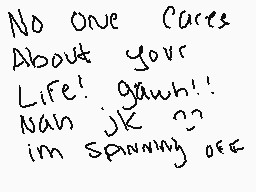 No one cares
About your
Life! gawh!!
Nah jk ^^
im spanning off